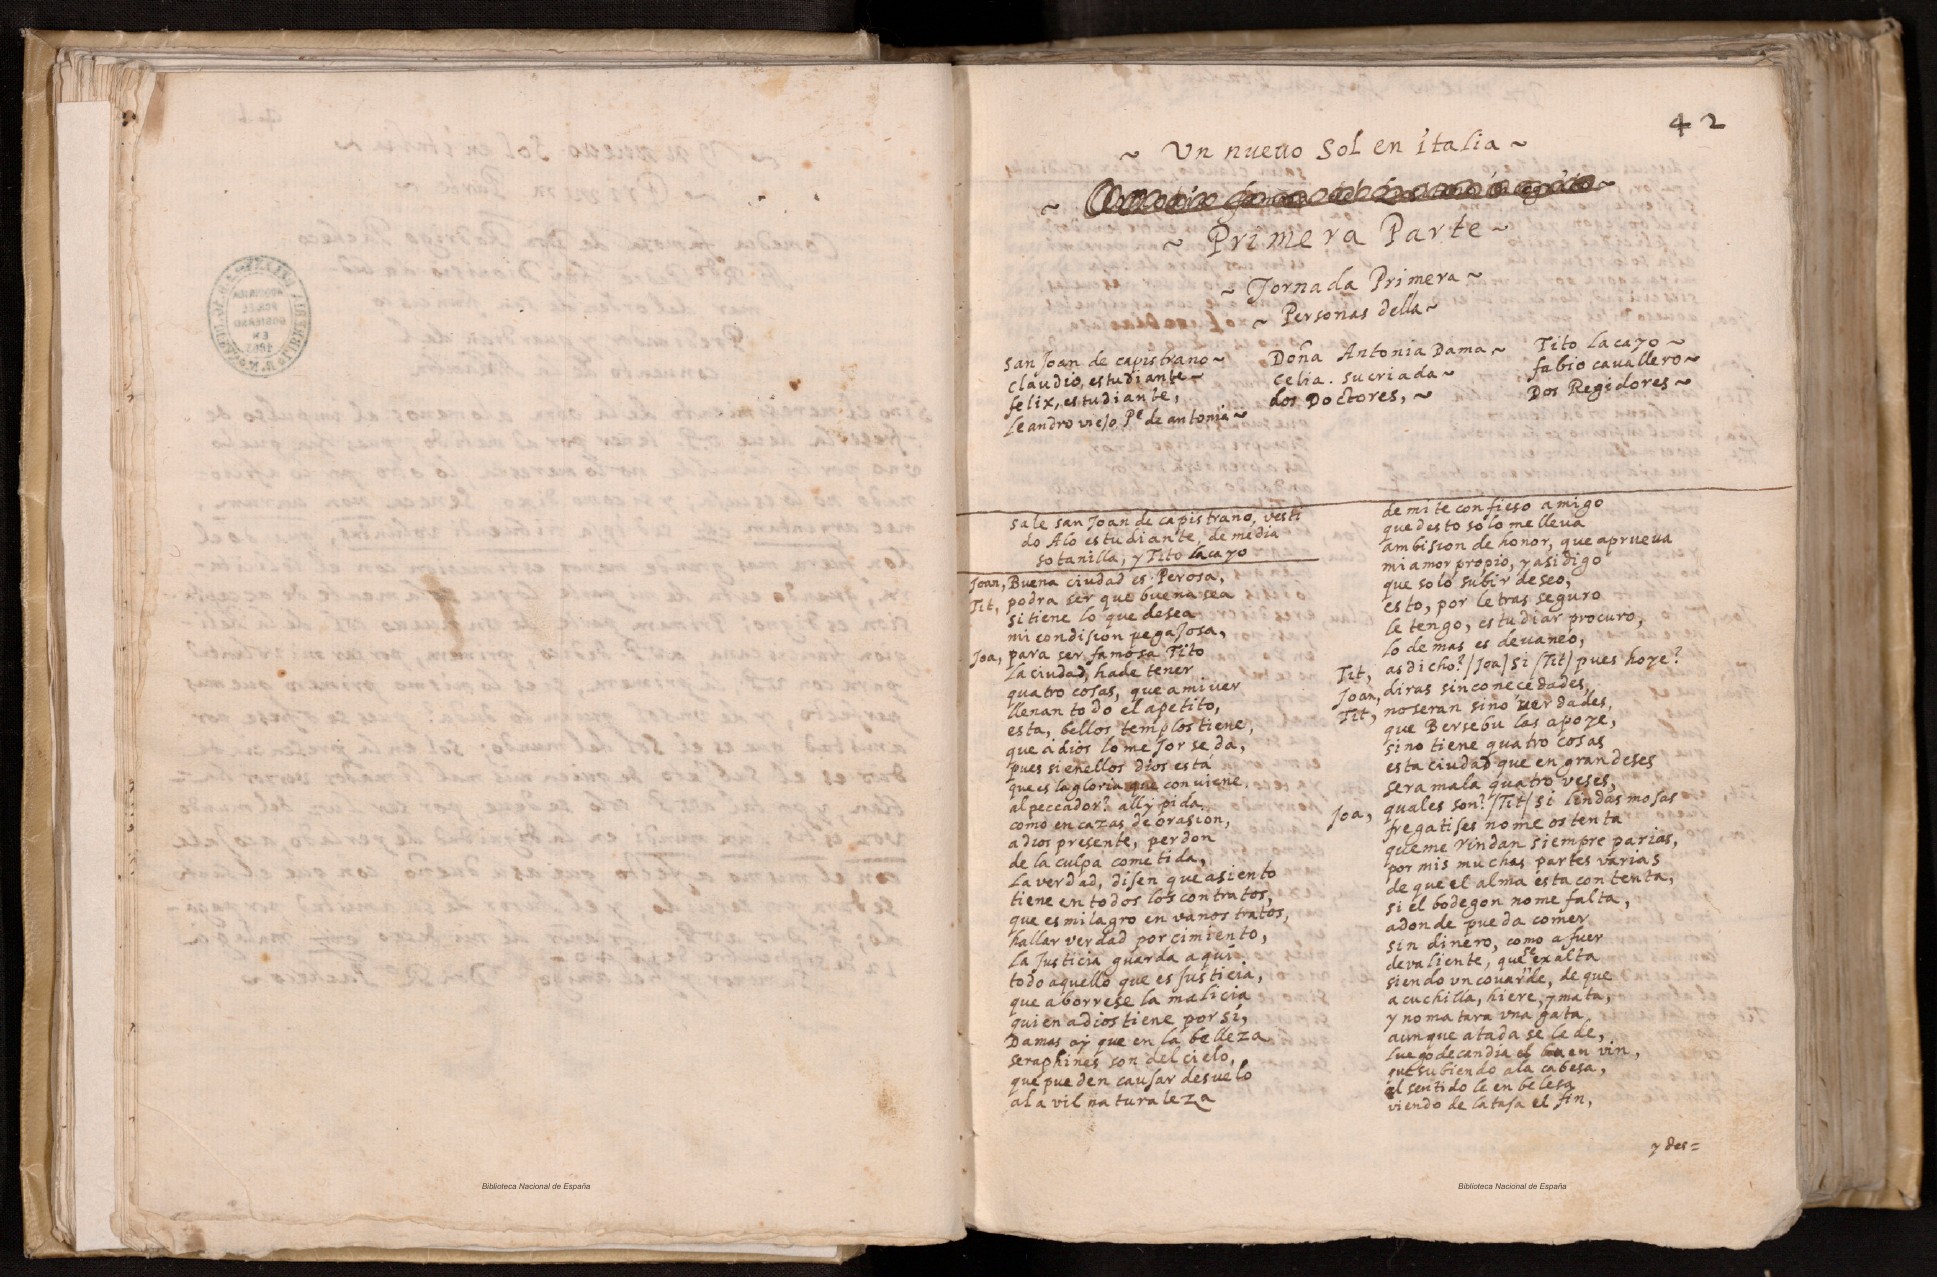 42
~ Vn nueuo Sol en italia ~
~ Primera Parte ~
~ Jornada Primera ~
~ Personas della ~
San Joan de capistrano ~
claudio, estudiante ~
felix, estudiante,
Leandro viejo Pe de antonia ~
Doña Antonia Dama ~
celia. su criada ~
dos Doctores, ~
Tito lacayo ~
fabio cauallero ~
Dos Regidores ~
sale san Joan de capistrano, vesti
do Alo estudiante, de media
sotanilla, y Tito lacayo
Joan, Buena ciudad es Perosa,
Tit, podra ser que buena sea
si tiene lo que desea
mi condision pegajosa,
Joa, para ser famosa Tito
la ciudad, hade tener
quatro cosas, que ami ver
llenan todo el apetito,
esta, bellos templos tiene,
que a dios lo mejor se da,
pues si enellos dios está
que es la gloria que conuiene
al peccador? alli pida
como en cazas de orasion,
a dios presente, perdon
de la culpa cometida,
La verdad, disen que asiento
tiene en todos los contratos,
que es milagro en vanos tratos,
hallar verdad por cimiento,
la Justicia guarda aqui
todo aquello que es justicia,
que aborrese la malicia
quien a dios tiene por si,
Damas ay que en la belleza
seraphines son del cielo,
que pueden causar desuelo
ala vil naturaleza
de mi te confieso amigo
que desto solo me lleua
ambision de honor, que aprueua
mi amor propio, y asi digo
que solo subir deseo,
esto, por letras seguro
le tengo, estudiar procuro,
lo demas es deuaneo,
Tit, as dicho? [Joa] si [Tit] pues hoye?
Joan, diras sinco necedades,
Tit, no seran sino verdades,
que Bersebu las apoye,
si no tiene quatro cosas
esta ciudad que en grandeses
sera mala quatro veses,
Joa, quales son? [Tit] si lindas mosas
fregatises no me ostenta
que me rindan siempre parias,
por mis muchas partes varias
de que el alma esta contenta,
si el bodegon no me falta,
adonde pueda comer
sin dinero, como a fuer
de valiente, que se exalta
siendo vn couarde, de que
acuchilla, hiere, y mata,
y no matara vna gata
aunque atada se le de,
luego de candia el buen vin,
que subiendo ala cabesa,
el sentido le enbelesa
viendo de la tasa el fin,
y des=
Biblioteca Nacional de España
Biblioteca Nacional de España